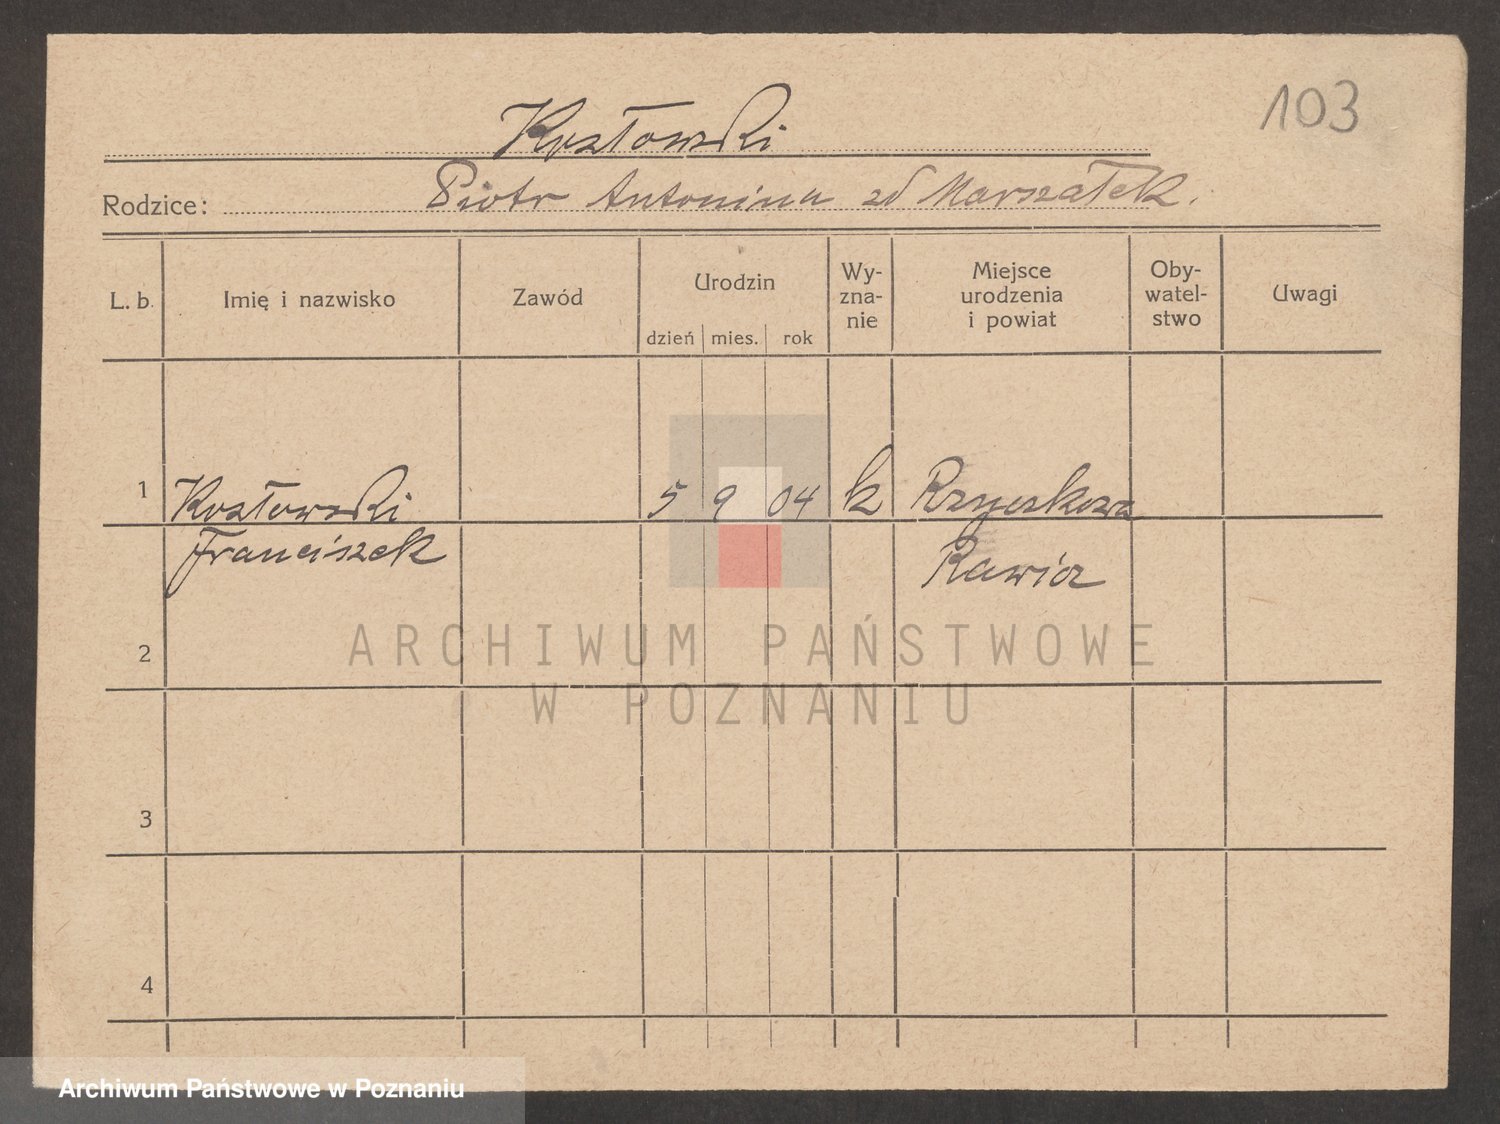 103
Kozłowski
Rodzice: Piotr Antonina zd Marszałek.
L. b. Imię i nazwisko Zawód Urodzin Wy-zna-nie Miejsce urodzenia i powiat Oby-watel-stwo Uwagi
dzień mies. rok
1 Kozłowski 5 9 04 k
Franciszek Rawicz
2
ARCHIWUM PAŃSTWOWE
W POZNANIU
3
4
Archiwum Państwowe w Poznaniu